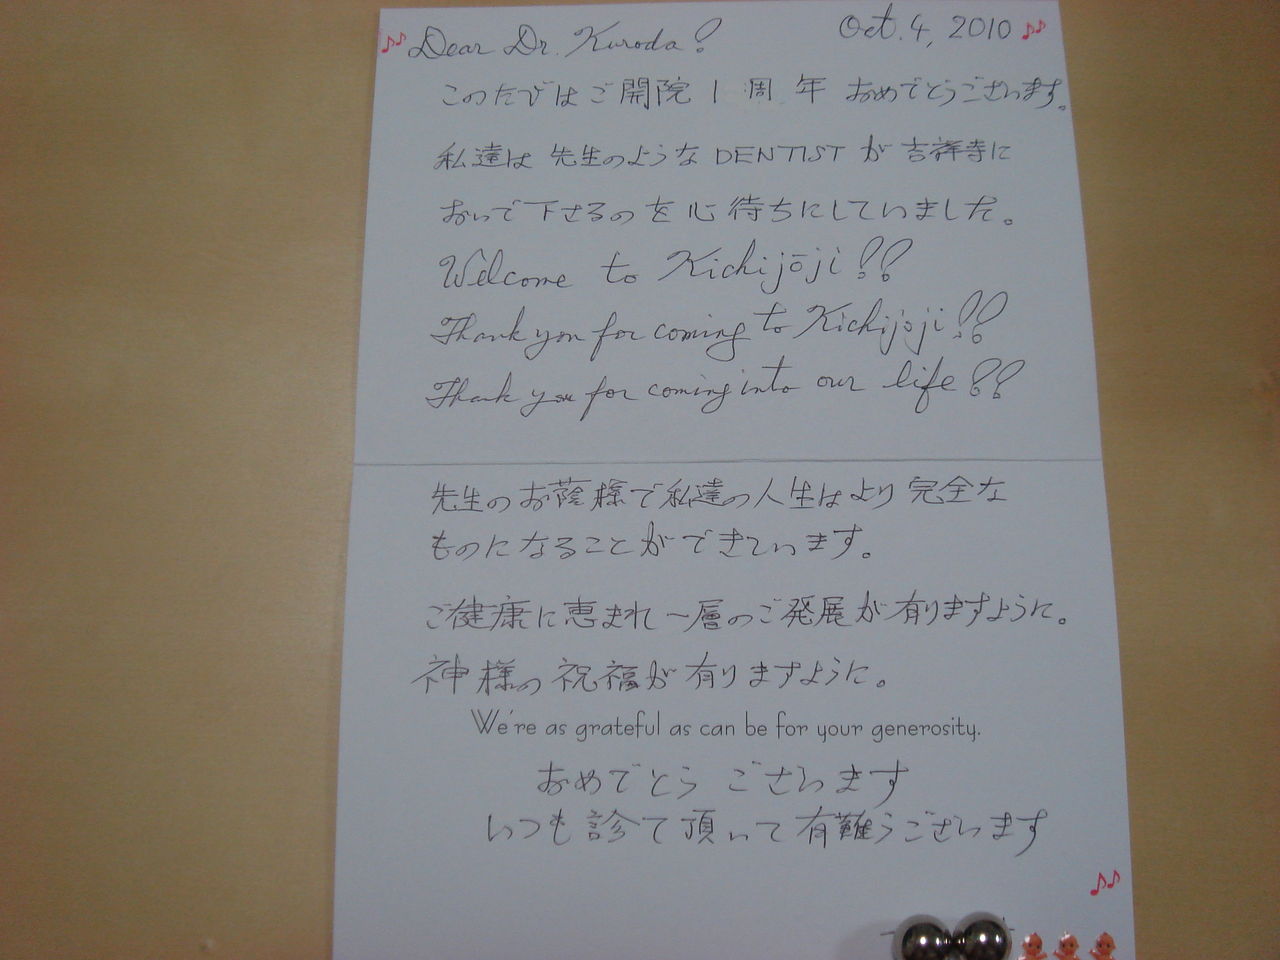 Dear Dr. Kuroda! Oct. 4, 2010
このたびはご開院1周年 おめでとうございます。
私達は先生のようなDENTISTが吉祥寺に
おいで下さるのを心待ちにしていました。
Welcome to Kichijōji!!
Thank you for coming to Kichijoji!!
Thank you for coming into our life!!
先生のお蔭様で私達の人生はより完全な
ものになることができています。
ご健康に恵まれ一層のご発展が有りますように。
神様の祝福が有りますように。
We're as grateful as can be for your generosity.
おめでとう ございます
いつも診て頂いて有難うございます